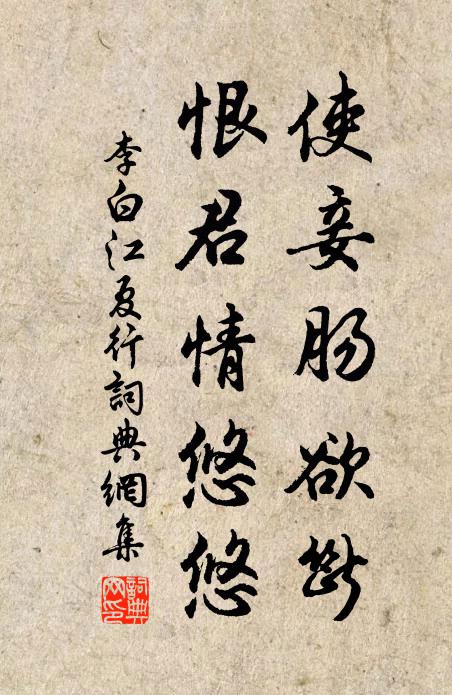 使妾肠欲断
恨君情悠悠
李白江夏行詞典網集
詞典网印